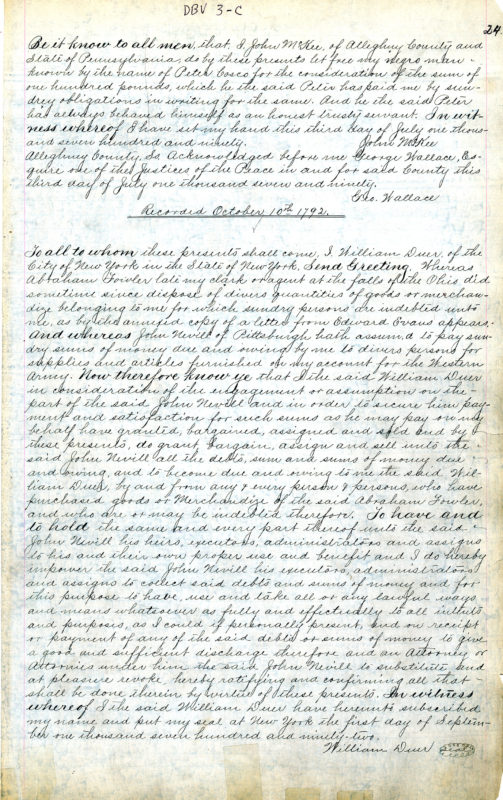 DBV 3-C
24
Be it know to all men, that, I John McKee, of Alleghny County and
State of Pennsylvania, do by these presents let free my negro man
known by the name of Peter Cosco for the consideration of the sum of
one hundred pounds, which he the said Peter has paid me by sun-
drey obligations in writing for the same. And he the said Peter
has always behaved himself as an honest trusty servant. In wit-
ness whereof I have set my hand this third day of July one thous-
and seven hundred and ninety. John McKee
Alleghany County, Ss Acknowledged before me George Wallace, Es-
quire one of the Justices of the Peace in and for said County this
third day of July one thousand seven and ninety.
Geo. Wallace
Recorded October 10th 1792.
To all to whom these presents shall come, I, William Duer, of the
City of New York in the State of New York, Send Greeting. Whereas
Abraham Fowler late my clark or agent at the falls of the Ohio did
sometime since dispose of divers quantities of goods or merchan-
dize belonging to me for which sundry persons are indebted unto
me, as by the annexed copy of a letter from Edward Evans appears.
And whereas John Nevill of Pittsburgh hath assum,d to pay sun-
dry sums of money due and owing by me to divers persons for
supplies and articles furnished on my account for the Western
Army. Now therefore know ye that I the said William Duer
in consideration of the engagement or assumption on the
part of the said John Nevill and in order to secure him pay-
ment and satisfaction for such sums as he may pay on my
behalf have granted, bargained, assigned and sold and by
these presents, do grant, bargain, assign and sell unto the
said John Nevill all the debts, sum and sums of money due
and owing, and to become due and owing to me the said Wil-
liam Duer, by and from any & every person & persons, who have
purchased goods or Merchandize of the said Abraham Fowler,
and who are or may be indebted therefore. To have and
to hold the same and every part thereof unto the said
John Nevill his heirs, executors, administrators and assigns
to his and their own proper use and benefit and I do hereby
impower the said John Nevill his executors, administrators
and assigns to collect said debts and sums of money and for
this purpose to have, use and take all or any lawful ways
and means whatsoever as fully and effectually to all intents
and purposes, as I could if personally present, and on receipt
or payment of any of the said debts or sums of money to give
a good and sufficient discharge therefore and an Attorney or
Attornies under him the said John Nevill to substitute and
at pleasure revoke, hereby ratifying and confirming all that
shall be done therein by virtue of these presents. In witness
whereof I the said William Duer have hereunto subscribed
my name and put my seal at New York the first day of Septem-
ber one thousand seven hundred and ninety-two.
William Duer seal